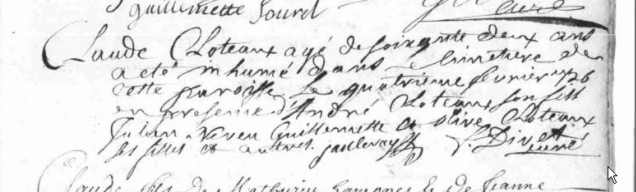 guillemette Jourd
Claude Cloteaux agé de soixante deux ans
a eté inhumé dans le cimetiere de
cette paroisse le quatrieme fevrier 1726
en presence d'André Cloteaux son fils
Julien Neveu Guillemette et olive Cloteaux
ses filles et autres
curé
Claude fils de Mathurin de Jeanne